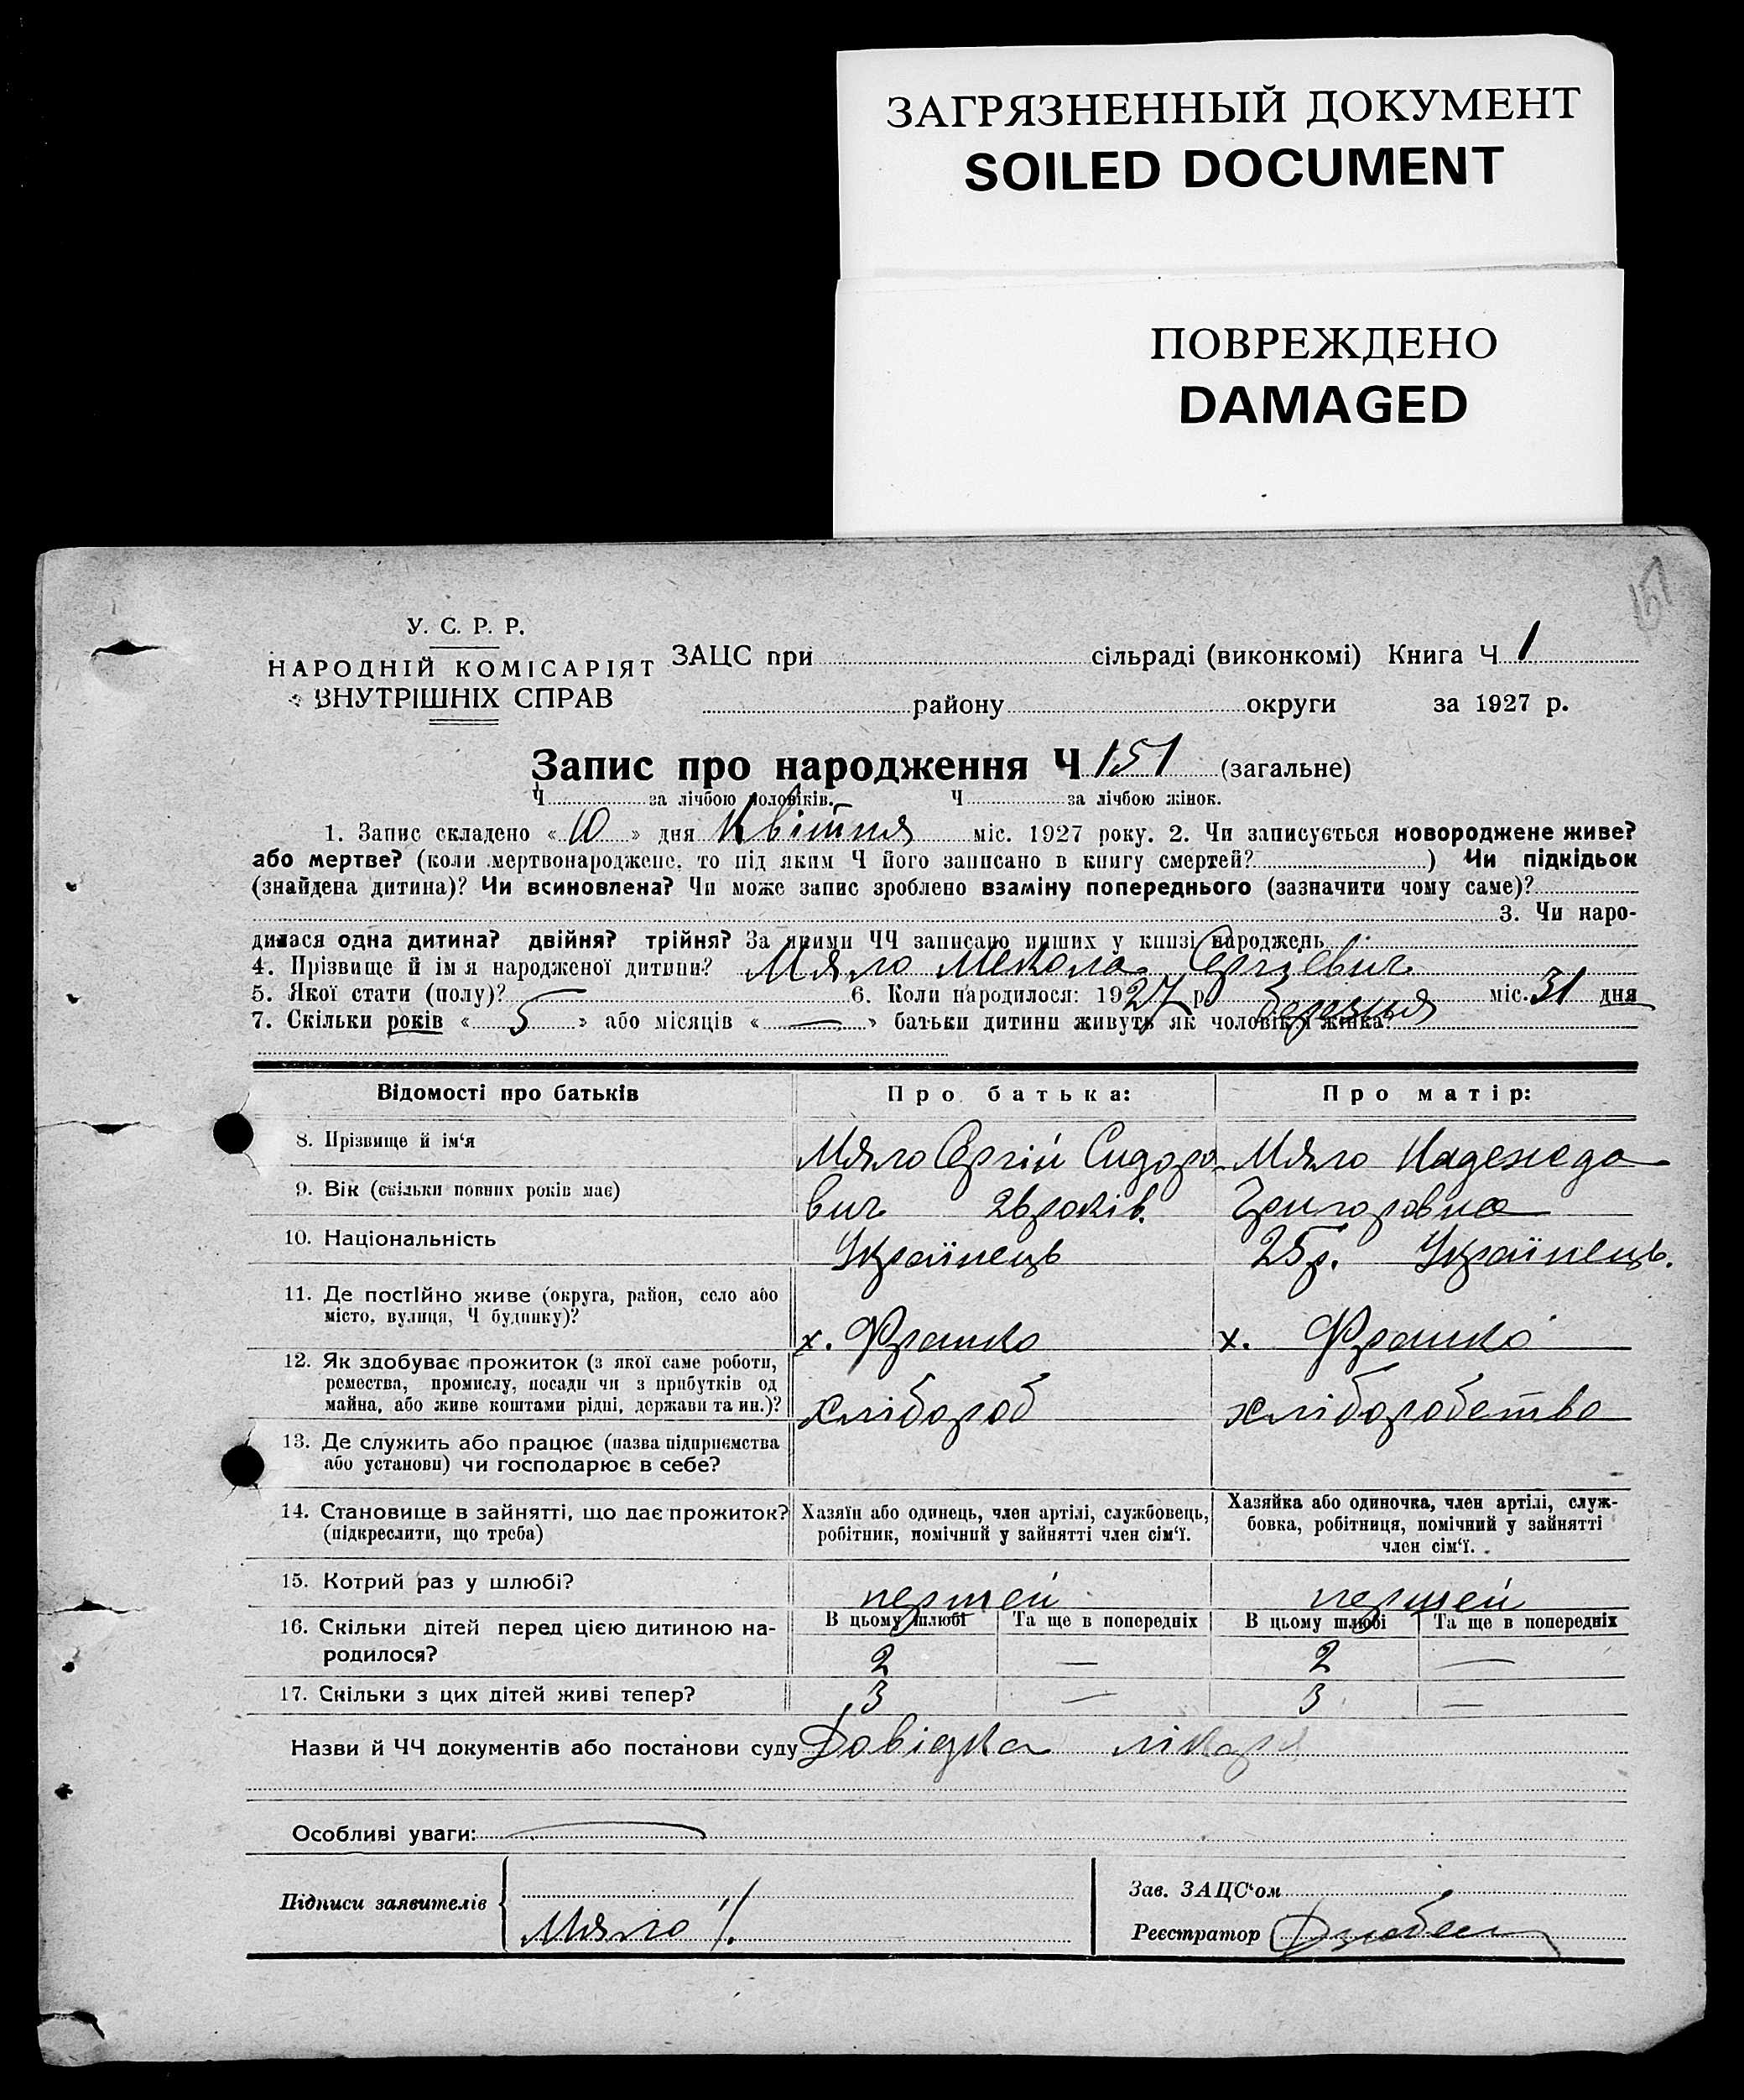 ЗАГРЯЗНЕННЫЙ ДОКУМЕНТ
SOILED DOCUMENT
ПОВРЕЖДЕНО
DAMAGED
151
У. С. Р. Р.
НАРОДНІЙ КОМІСАРІЯТ
ВНУТРІШНІХ СПРАВ
ЗАЦС при сільраді (виконкомі) Книга Ч 1
району округи за 1927 р.
Запис про народження Ч 151 (загальне)
Ч за лічбою чоловіків. Ч за лічбою жінок.
1. Запис складено « 10 » дня Квітня міс. 1927 року. 2. Чи записується новороджене живе?
або мертве? (коли мертвонароджене, то під яким Ч його записано в книгу смертей? ) Чи підкідьок
(знайдена дитина)? Чи всиновлена? Чи може запис зроблено взаміну попереднього (зазначити чому саме)?
3. Чи наро-
дилася одна дитина? двійня? трійня? За якими ЧЧ записано инших у книзі народжень
4. Прізвище й ім я народженої дитини? Мяло Мекола Сергієвич
5. Якої стати (полу)? 6. Коли народилося: 1927 р. березня міс. 31 дня
7. Скільки років « 5 » або місяців « — » батьки дитини живуть як чоловік й жінка?
Відомості про батьків Про батька: Про матір:
8. Прізвище й ім‘я Мяло Сергій Сидоро Мяло Надежда
9. Вік (скільки повних років має) вич 26 років. Григоровна
10. Національність Українець 25 р. Українець.
11. Де постійно живе (округа, район, село або
місто, вулиця, Ч будинку)? х. Франко х. Франко
12. Як здобуває прожиток (з якої саме роботи,
ремества, промислу, посади чи з прибутків од
майна, або живе коштами рідні, держави та ин.)? хлібороб хліборобство
13. Де служить або працює (назва підприємства
або установи) чи господарює в себе?
14. Становище в зайнятті, що дає прожиток?
(підкреслити, що треба)
Хазяїн або одинець, член артілі, службовець,
робітник, помічний у зайнятті член сім‘ї.
Хазяйка або одиночка, член артілі, служ-
бовка, робітниця, помічний у зайнятті
член сім‘ї.
15. Котрий раз у шлюбі? першей першей
16. Скільки дітей перед цією дитиною на-
родилося?
В цьому шлюбі Та ще в попередніх В цьому шлюбі Та ще в попередніх
2 — 2 —
17. Скільки з цих дітей живі тепер? 3 — 3 —
Назви й ЧЧ документів або постанови суду Довідка лікаря
Особливі уваги:
Підписи заявителів Мяло
Зав. ЗАЦС‘ом
Реєстратор